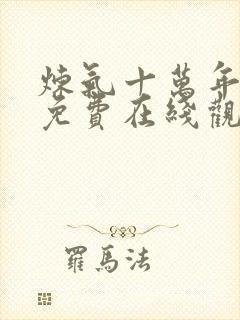 煉氣十萬年
免費在綫觀
羅馬法